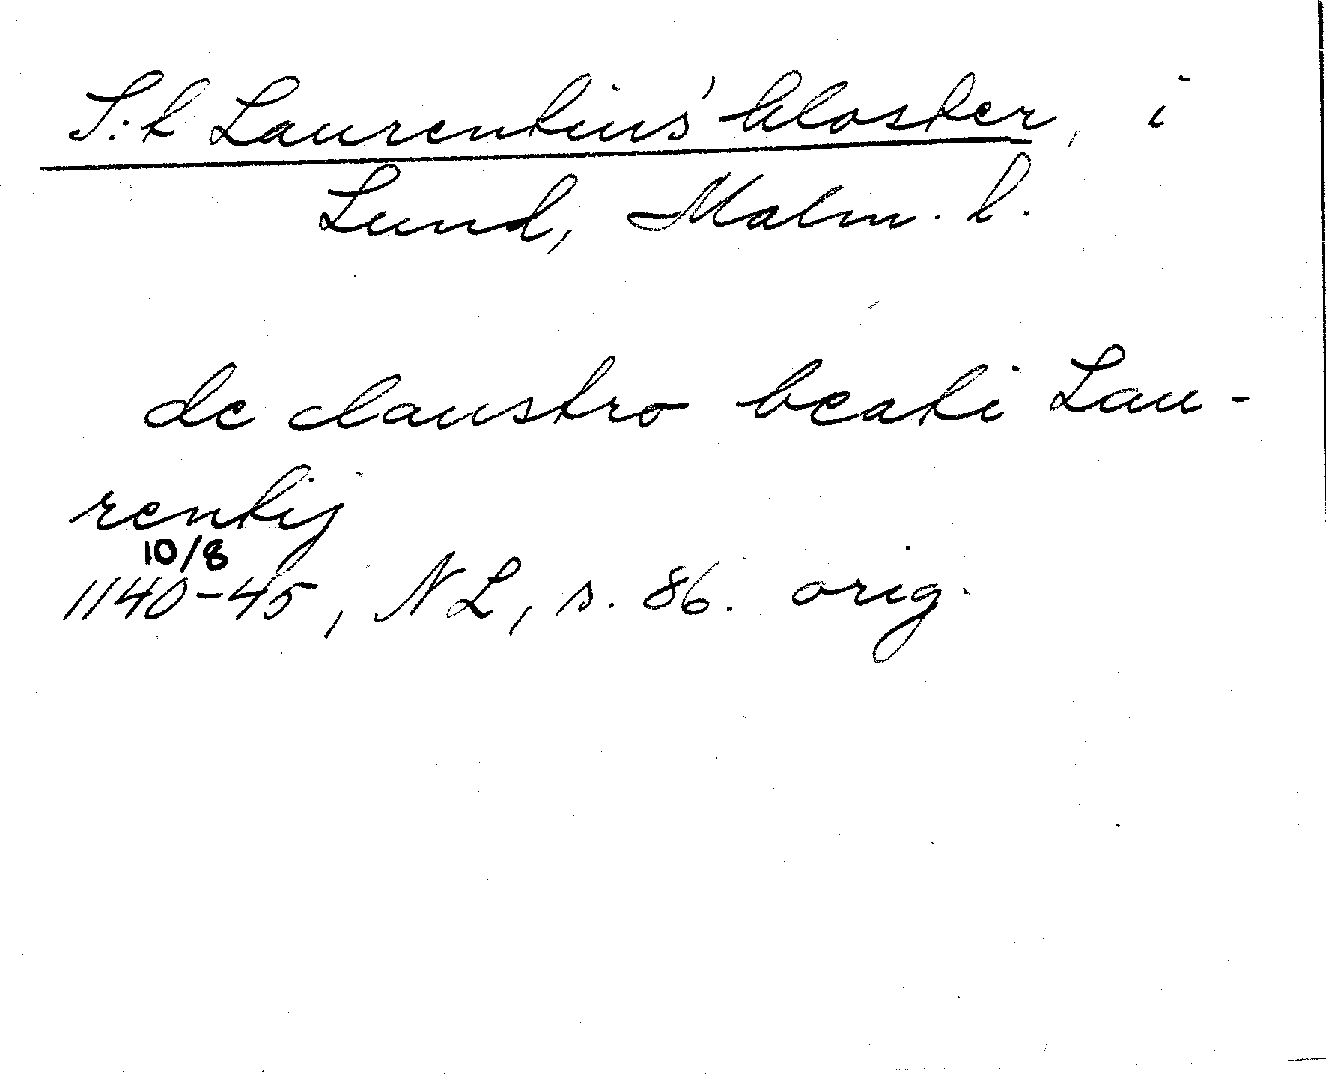 S:t Laurentius' kloster, i
Lund, Malm. l.
de claustro beati Lau-
rentij
10/8
1140-45, NL, s. 86. orig.